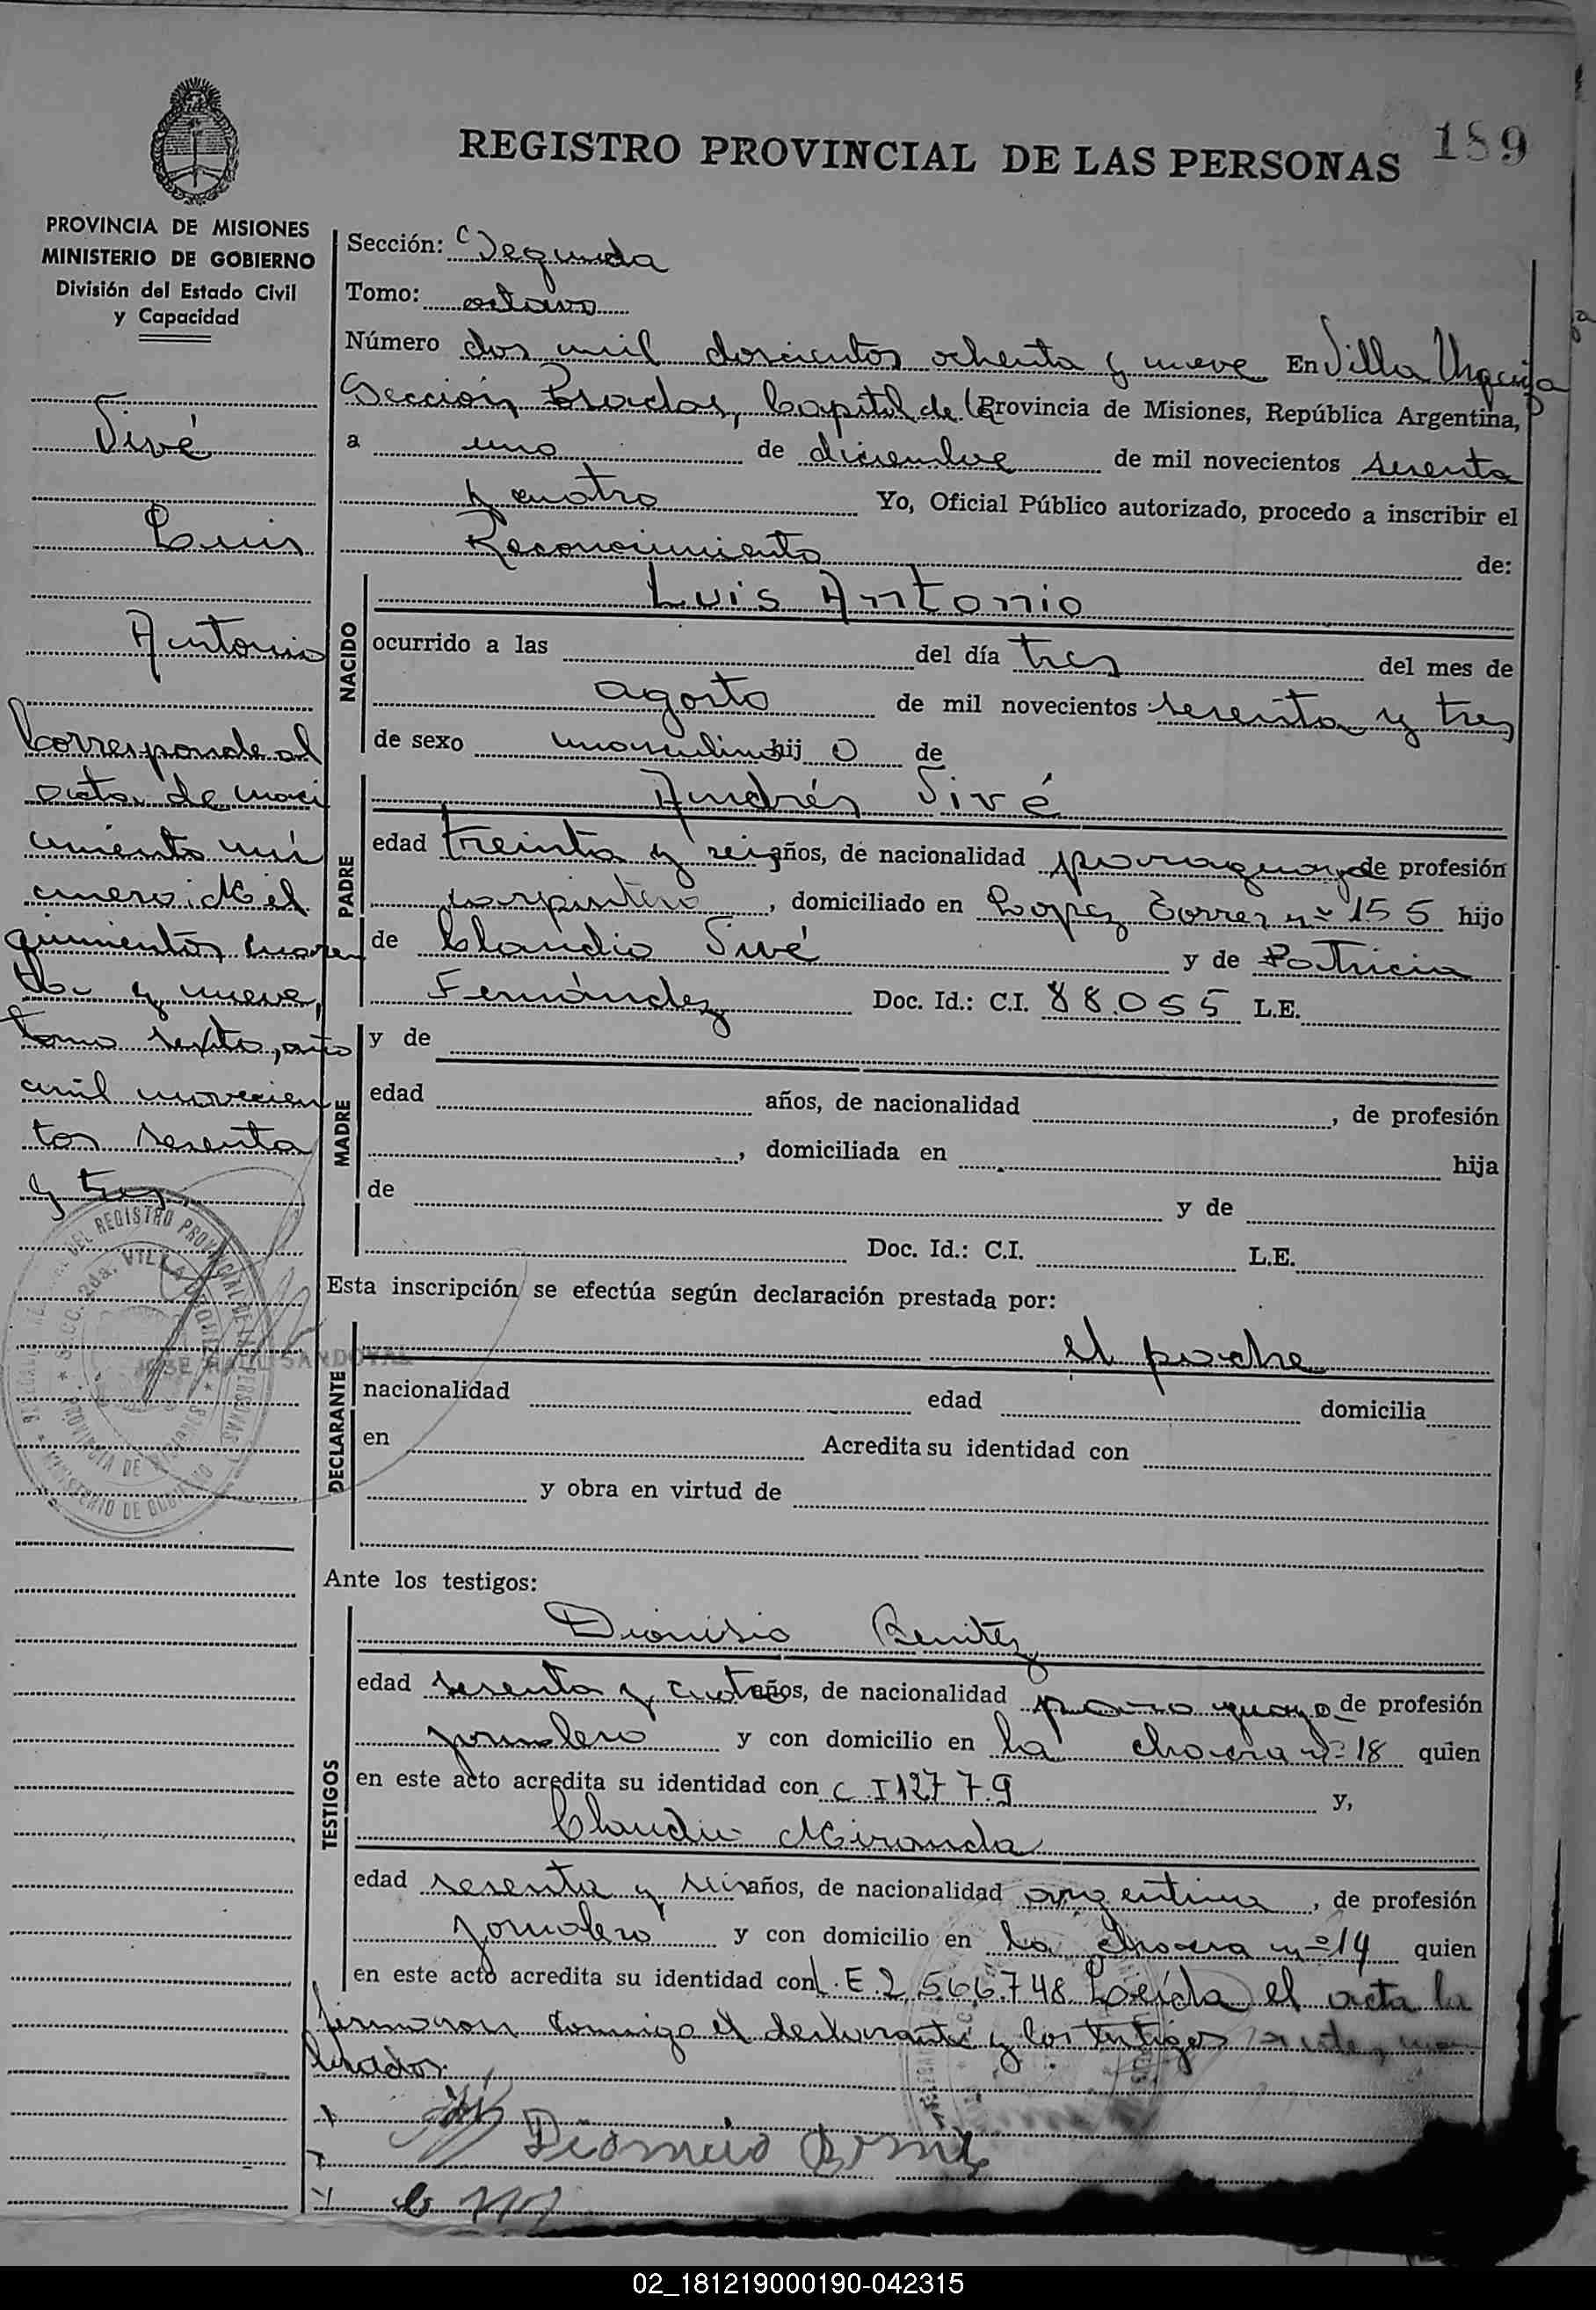 189
REGISTRO PROVINCIAL DE LAS PERSONAS
PROVINCIA DE MISIONES
MINISTERIO DE GOBIERNO
División del Estado Civil
y Capacidad
Sivé
Luis
Antonio
Corresponde al
acta de naci
miento nú
mero: Mil
quinientos cuaren
ta y nueve,
tomo sexto, año
mil novecien
tos sesenta
y tres
Sección: Segunda
Tomo: octavo
Número dos mil doscientos ochenta y nueve En Villa Urquiza
Sección Posadas, Capital de la Provincia de Misiones, República Argentina,
a uno de diciembre de mil novecientos sesenta
y cuatro Yo, Oficial Público autorizado, procedo a inscribir el
Reconocimiento de:
NACIDO
Luis Antonio
ocurrido a las del día tres del mes de
agosto de mil novecientos sesenta y tres
de sexo masculino hij o de
PADRE
Andrés Sivé
edad treinta y seis años, de nacionalidad paraguaya de profesión
carpintero, domiciliado en Lopez Torres nº 155 hijo
de Claudio Sivé y de Patricia
Fernández Doc. Id.: C.I. 88.055 L.E.
MADRE
y de
edad años, de nacionalidad , de profesión
, domiciliada en hija
de y de
Doc. Id.: C.I. L.E.
Esta inscripción se efectúa según declaración prestada por:
DECLARANTE
el padre
nacionalidad edad domicilia
en Acredita su identidad con
y obra en virtud de
Ante los testigos:
TESTIGOS
Dionisio Benitez
edad sesenta y cuatro años, de nacionalidad paraguaya de profesión
jornalero y con domicilio en la chacra nº 18 quien
en este acto acredita su identidad con C.I 12779 y,
Claudio Miranda
edad sesenta y seis años, de nacionalidad argentina, de profesión
jornalero y con domicilio en la chacra nº 14 quien
en este acto acredita su identidad con L.E. 2.566.748 Leída el acta la
firmaron conmigo el declarante y los testigos
Dionicio
JOSE RAUL SANDOVAL
SECC. 2da. VILLA URQUIZA
PROVINCIA DE MISIONES
DEL REGISTRO PROVINCIAL DE LAS PERSONAS
MINISTERIO DE GOBIERNO
02_181219000190-042315